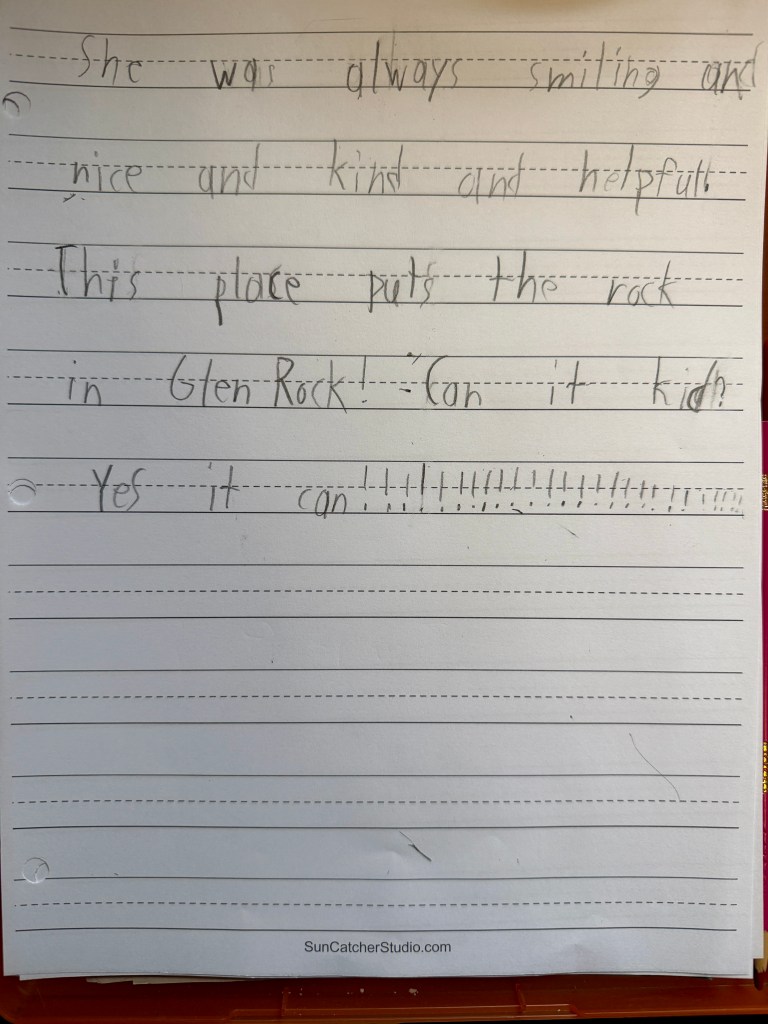 She was always smiling and
nice and kind and helpfull
This place puts the rock
in Glen Rock! Can it kid?
Yes it can!!!!!!!!!!!!!!!!!!!!!!!!!!!!!
SunCatcherStudio.com